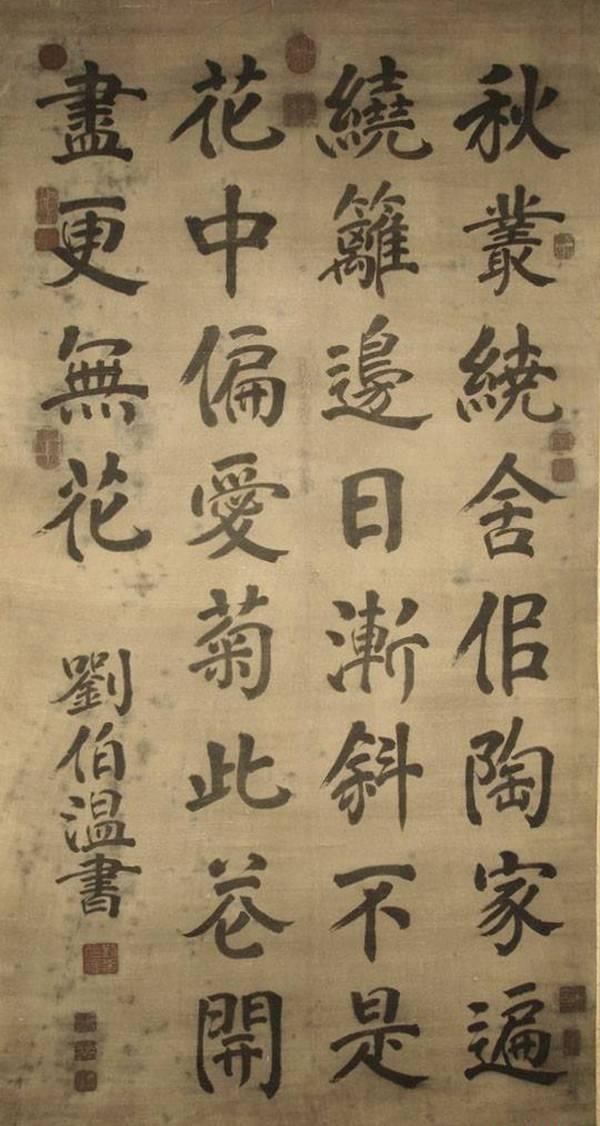 秋叢繞舍佀陶家遍
繞籬邊日漸斜不是
花中偏愛菊此花開
盡更無花
劉伯温書